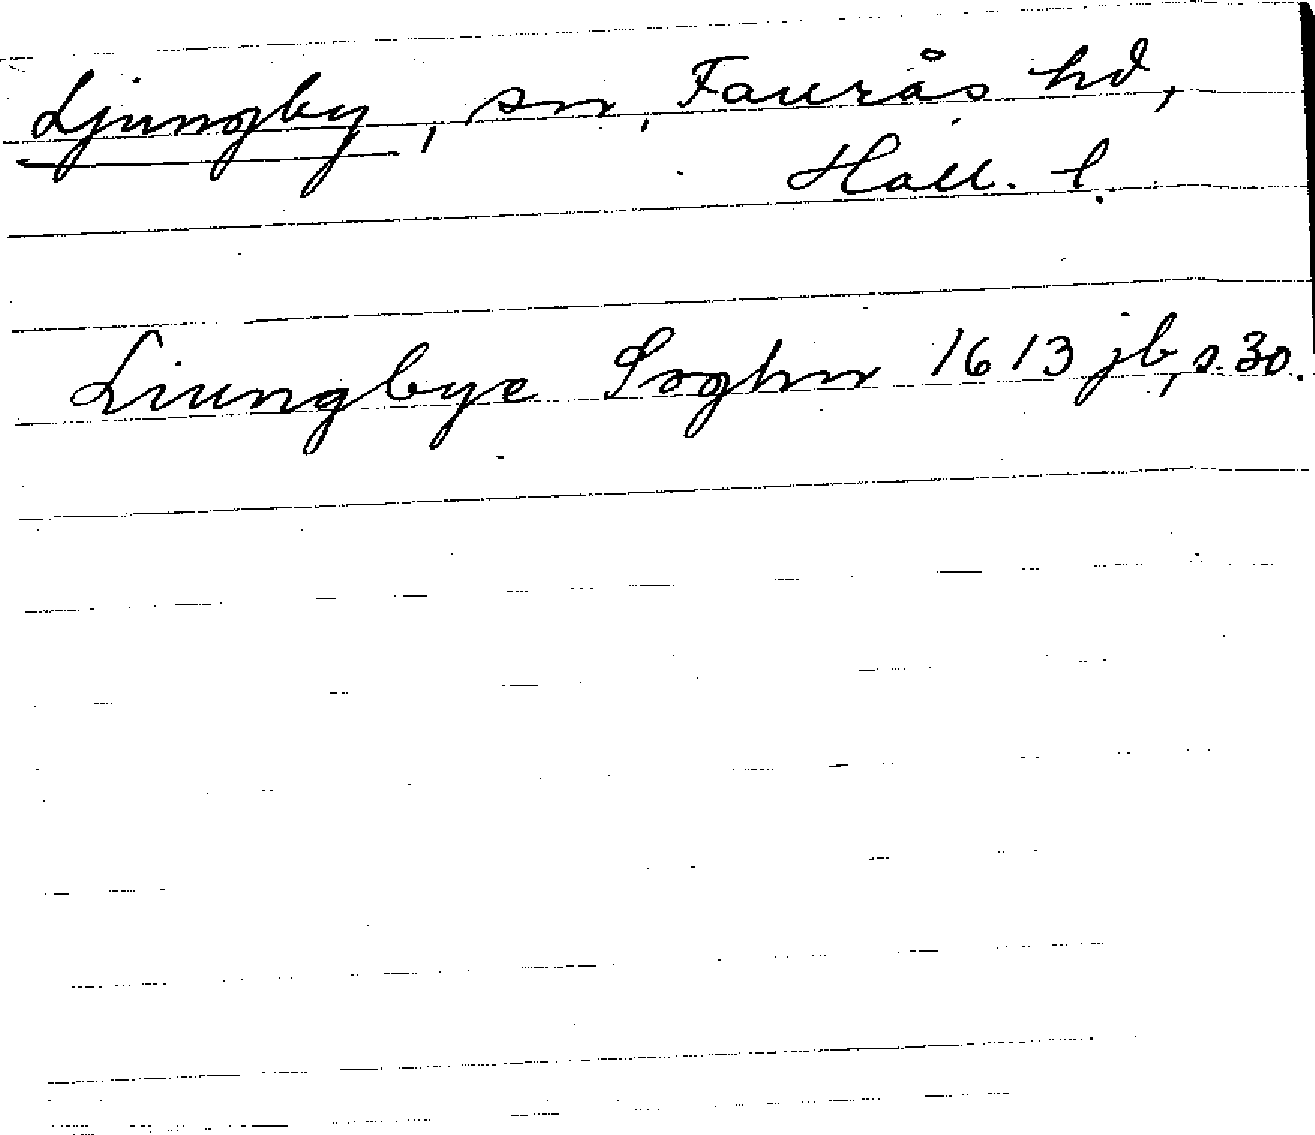 Ljungby, sn, Faurås hd,
Hall. l.
Liungbye Soghn 1613 jb, s. 30.